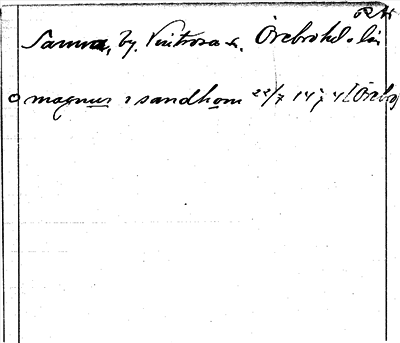 Sanna, by. Vintrosa s. Örebro hd. o. län
magnus i sandhom 22/7 14 4 [Örebro